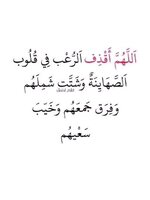 اَللَّهُمَّ اَقْذِفِ اَلرُّعْبَ فِي قُلُوب
اَلصَّهَايِنَةٌ وَشَتَّتِ شَمِلَهُم
وَفِرَق جَمعَهُم وَخَيَبَ
سَعْيهُم